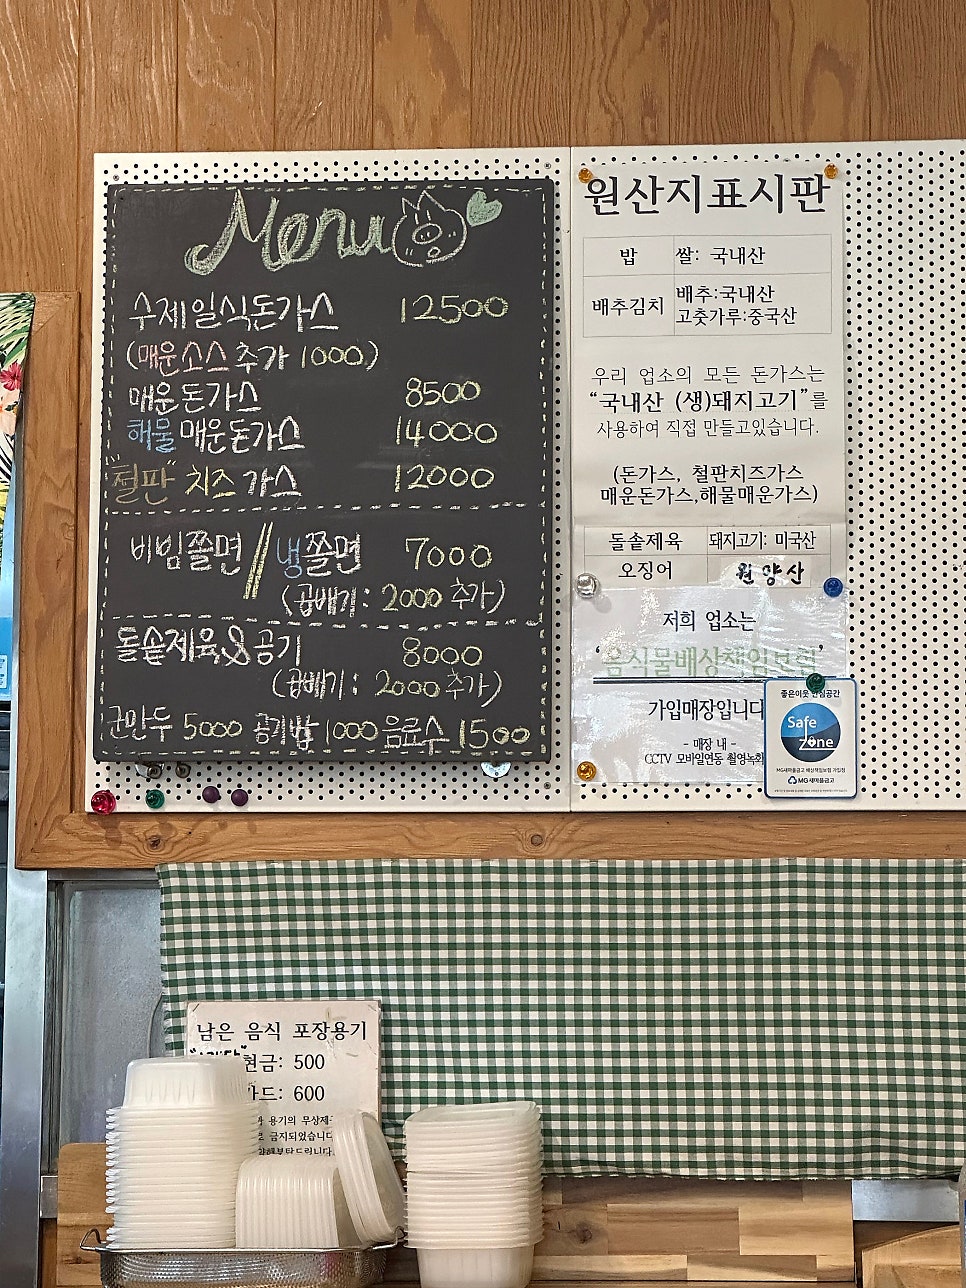 Menu
수제일식돈가스 12500
(매운소스 추가 1000)
매운돈가스 8500
해물매운돈가스 14000
"철판" 치즈가스 12000
비빔쫄면 // 냉쫄면 7000
(곱배기: 2000 추가)
돌솥제육&공기 8000
(곱배기: 2000추가)
군만두 5000 공기밥 1000 음료수 1500
원산지표시판
밥 쌀: 국내산
배추김치 배추:국내산
고춧가루:중국산
우리 업소의 모든 돈가스는
"국내산 (생)돼지고기"를
사용하여 직접 만들고있습니다.
(돈가스, 철판치즈가스
매운돈가스,해물매운가스)
돌솥제육 돼지고기: 미국산
오징어 원양산
저희 업소는
'음식물배상책임보험'
가입매장입니다
- 매장 내 -
CCTV 모바일연동 촬영녹화
좋은이웃 안심공간
Safe
Zone
MG새마을금고 배상책임보험 가입점
MG새마을금고
남은 음식 포장용기
현금: 500
카드: 600
용기의 무상제
금지되었습니다
부탁드립니다.